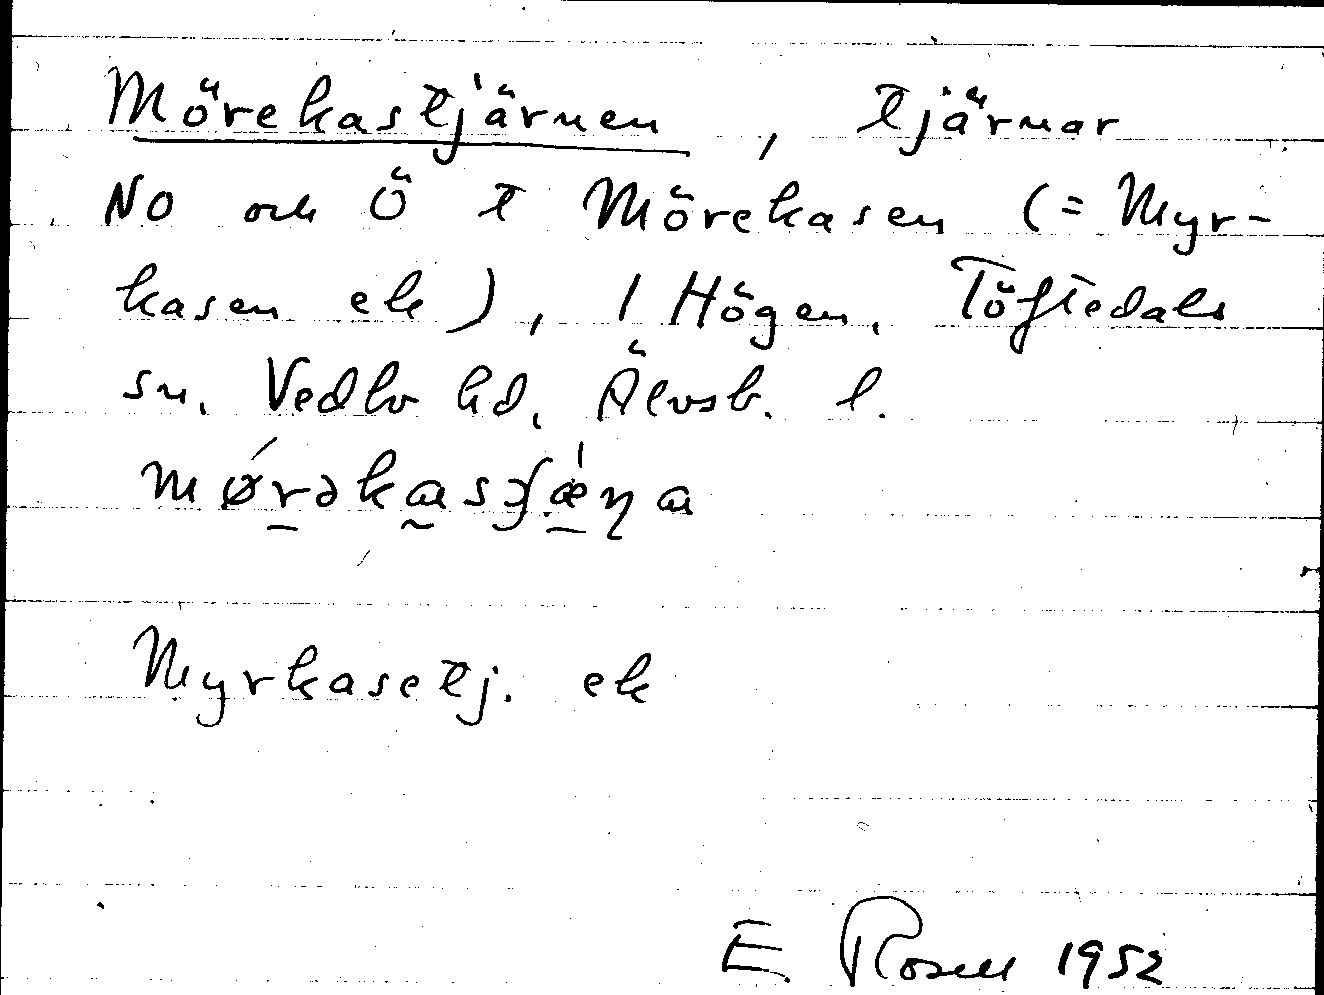 Mörekastjärnen, tjärnar
NO och Ö t Mörekasen (= Myr-
kasen ek), I Högen, Töftedals
sn. Vedbo hd, Älvsb. l.
Myrkasetj. ek
E. Rosell 1952